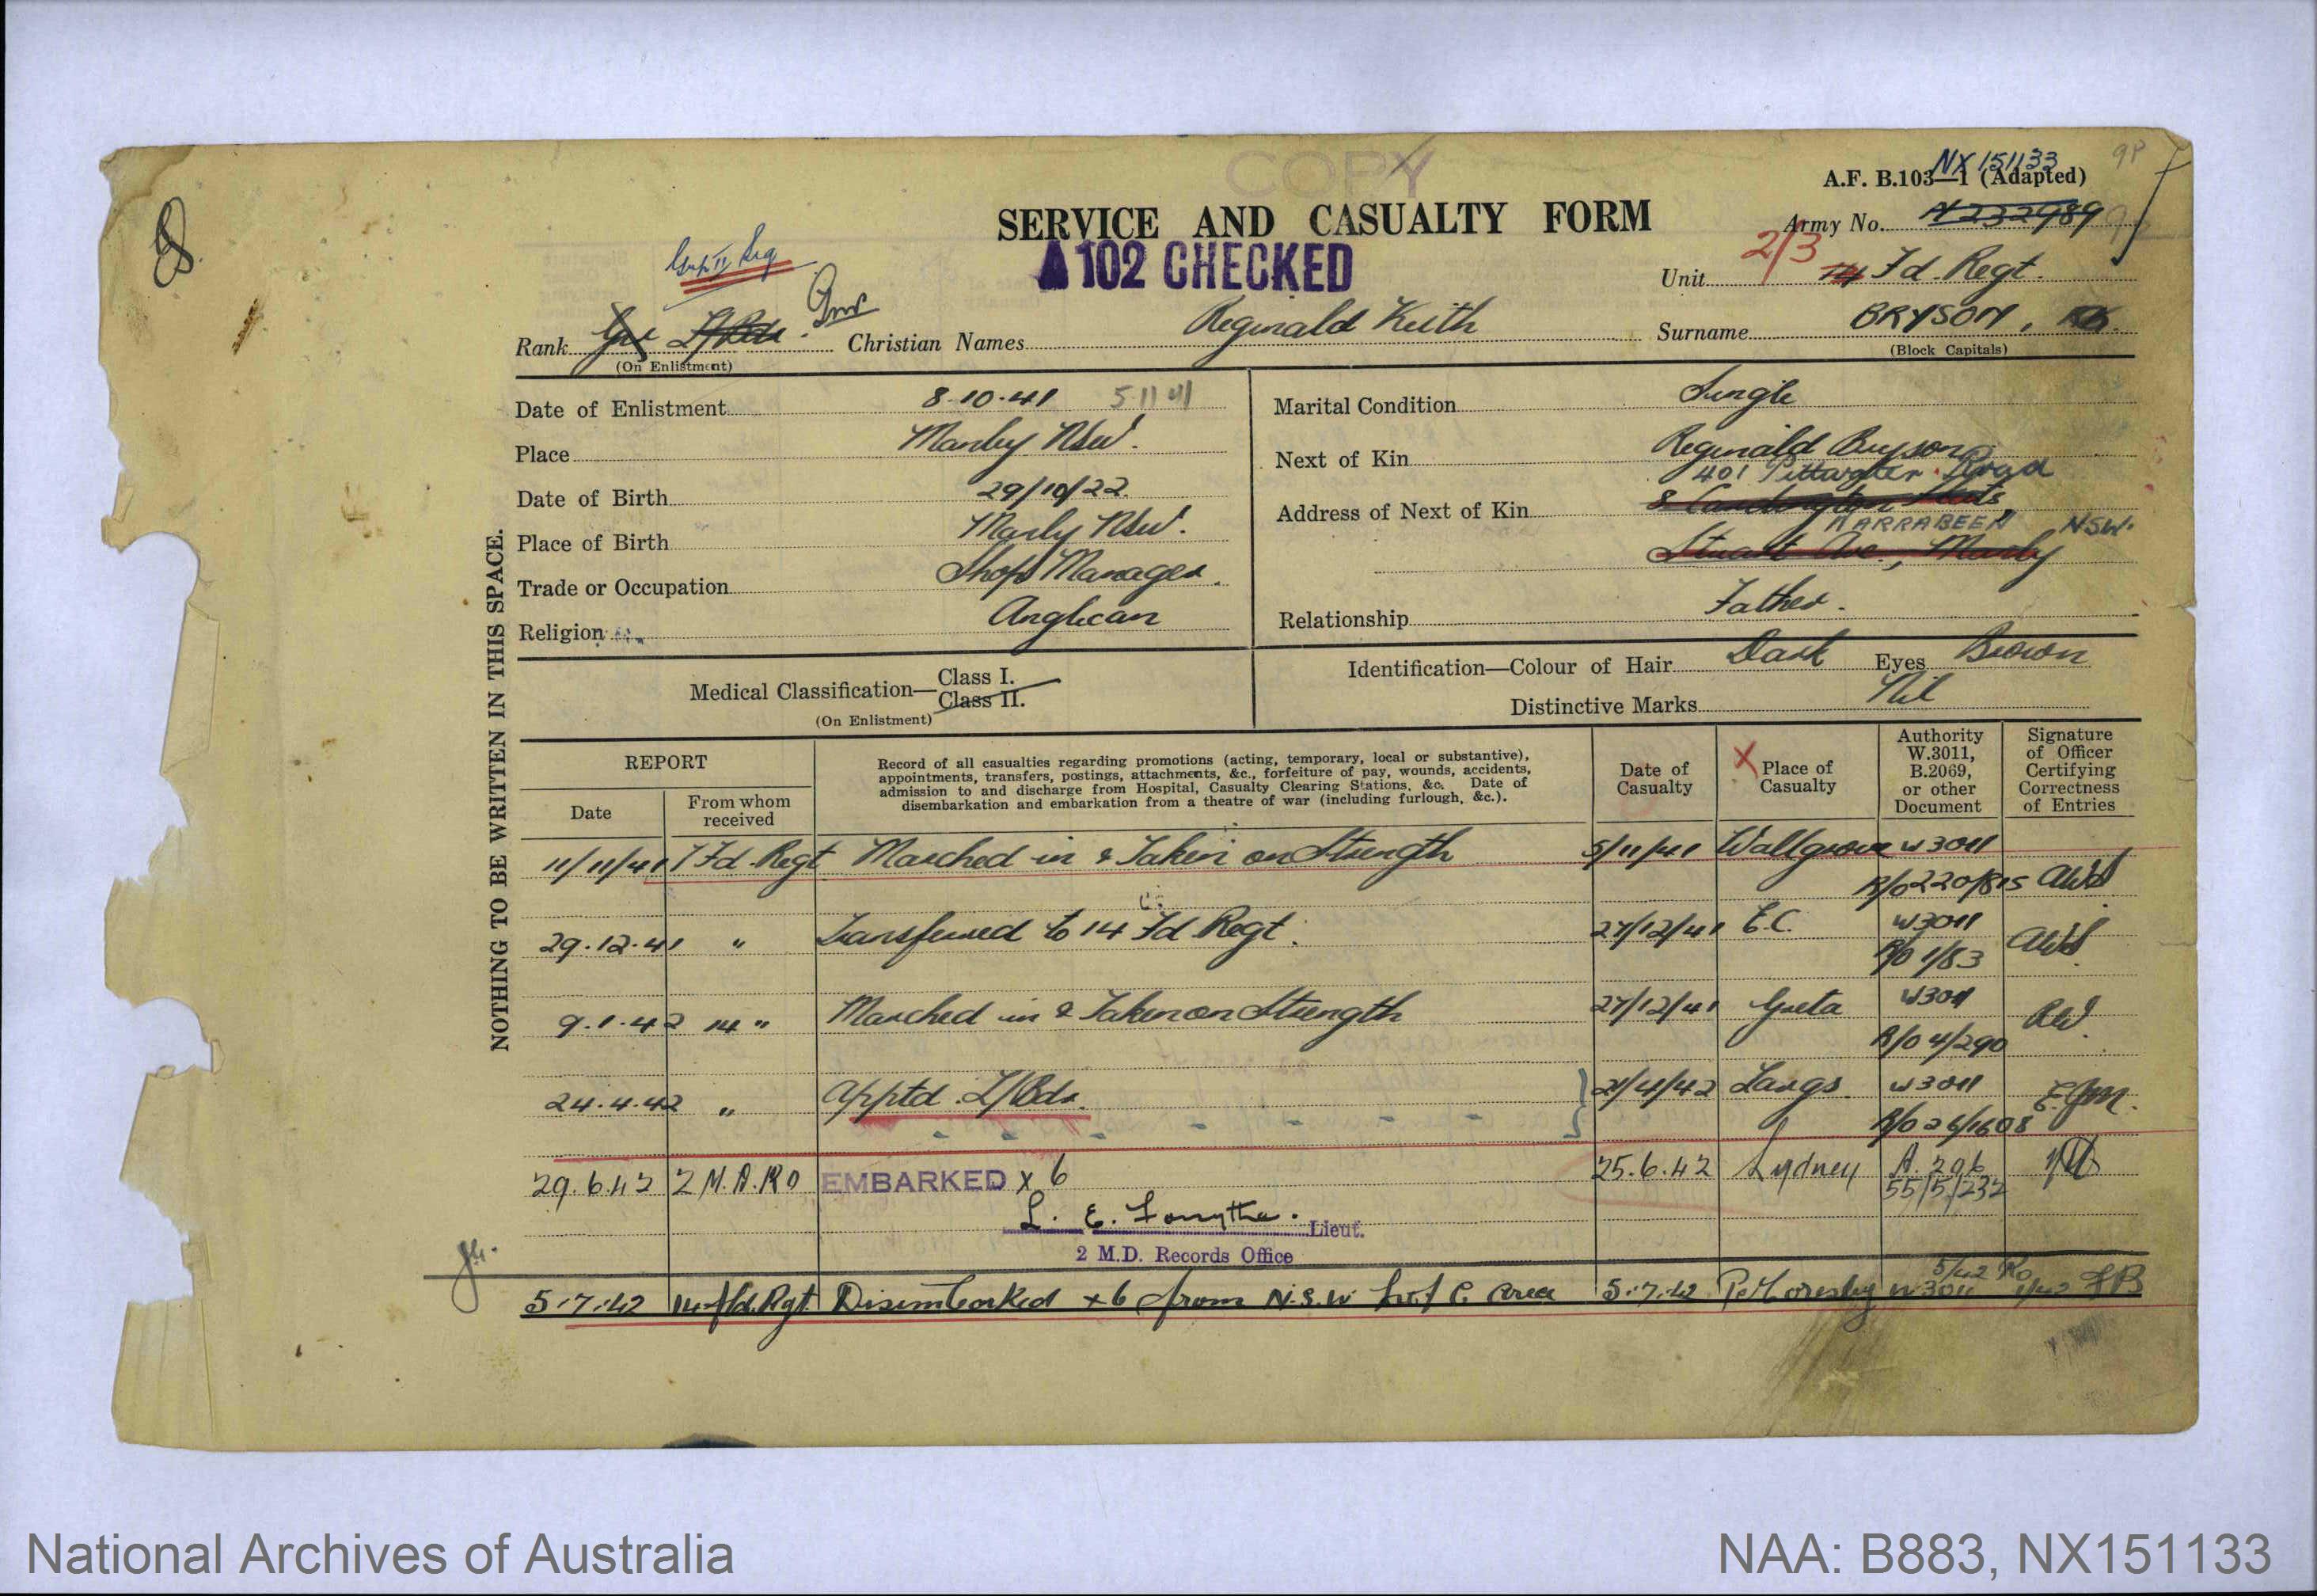 COPY
NX151133
A.F. B.103—1 (Adapted)
SERVICE AND CASUALTY FORM
Army No. N232989
102 CHECKED
Unit 2/3 14 Fd. Regt.
Rank Gnr L/Bdr. Gnr Christian Names Reginald Keith Surname BRYSON,
(On Enlistment) (Block Capitals)
Date of Enlistment 8.10.41 5.11.41
Place Manly NSW.
Date of Birth 29/10/22
Place of Birth Manly NSW.
Trade or Occupation Shop Manager.
Religion Anglican
Marital Condition Single
Next of Kin Reginald Bryson
401 Pittwater Road
Address of Next of Kin 8
NARRABEEN NSW.
Stuart Ave., Manly
Relationship Father.
Medical Classification— Class I.
Class II.
(On Enlistment)
Identification—Colour of Hair Dark Eyes Brown
Distinctive Marks Nil
NOTHING TO BE WRITTEN IN THIS SPACE.
REPORT
Date
From whom received
Record of all casualties regarding promotions (acting, temporary, local or substantive),
appointments, transfers, postings, attachments, &c., forfeiture of pay, wounds, accidents,
admission to and discharge from Hospital, Casualty Clearing Stations, &c. Date of
disembarkation and embarkation from a theatre of war (including furlough, &c.).
Date of Casualty
X Place of Casualty
Authority W.3011, B.2069, or other Document
Signature of Officer Certifying Correctness of Entries
11/11/41 7 Fd. Regt Marched in & Taken on Strength 5/11/41 Wallgrove W3011
R/O 220/815
29.12.41 " Transferred to 14 Fd. Regt. 27/12/41 E.C. W3011
R/O 1/83
9.1.42 14 " Marched in & Taken on Strength 27/12/41 Greta W3011
R/O 4/290
24.4.42 " Apptd. L/Bdr. 21/4/42 Largs W3011
R/O 26/1608
29.6.42 2 M.A.RO EMBARKED x 6 25.6.42 Sydney A. 296
55/5/232
L. E. Forsythe. Lieut.
2 M.D. Records Office
5/42 Ro
5.7.42 14 Fld. Rgt. Disembarked x6 from N.S.W. L of C. Area 5.7.42 Pt Moresby W3011 1/42
National Archives of Australia
NAA: B883, NX151133